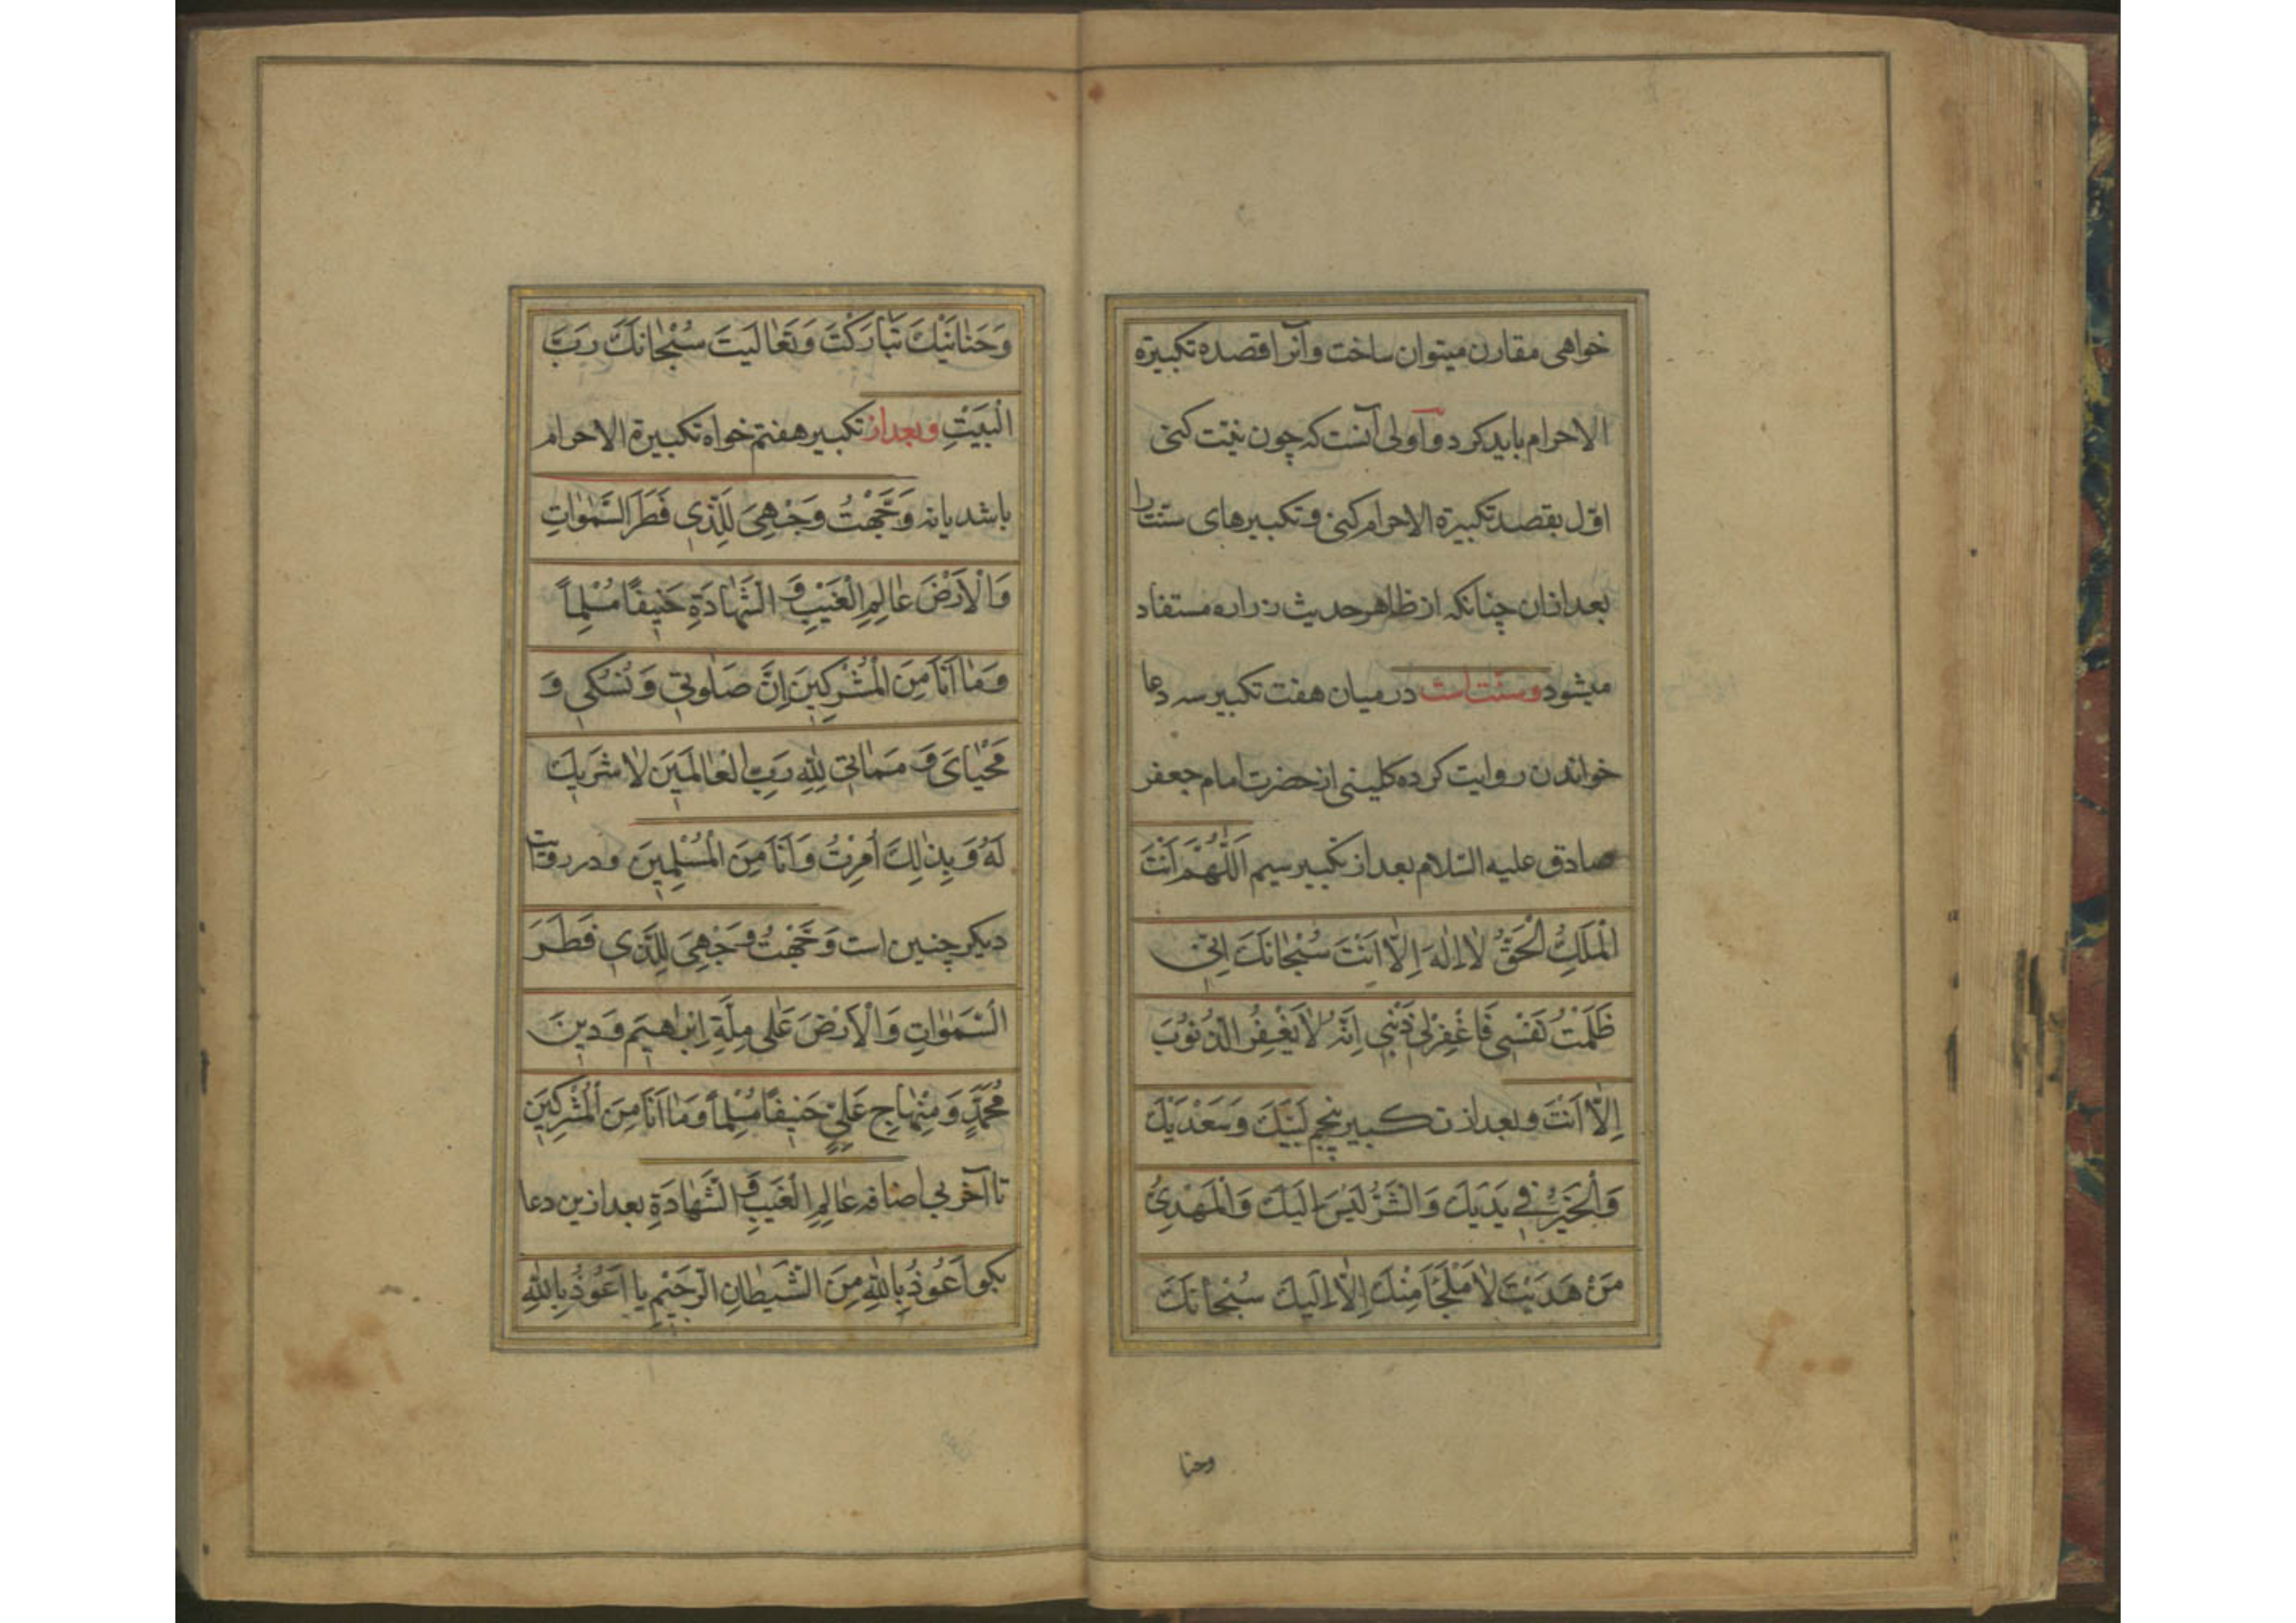 خواهی مقارن میتوان ساخت و آنرا قصد تکبیرة
الاحرام باید کرد و اولی آنست که چون نیّت کنی
اوّل بقصد تکبیرة الاحرام کنی و تکبیرهای سنّت را
بعد ازان چنانکه از ظاهر حدیث زراره مستفاد
میشود و سنّت است در میان هفت تکبیر سه دعا
خواندن روایت کرده کلینی از حضرت امام جعفر
صادق علیه السّلام بعد از تکبیر سیم اَللّٰهُمَّ اَنْتَ
الْمَلِكُ الْحَقُّ لٰا اِلٰهَ اِلّٰا اَنْتَ سُبْحٰانَكَ اِنّی
ظَلَمْتُ نَفْسِی فَاغْفِرْلِی ذَنْبِی اِنَّهُ لٰا یَغْفِرُ الذُّنُوبَ
اِلّٰا اَنْتَ و بعد از تکبیر پنجم لَبَّیْكَ وَ سَعْدَیْكَ
وَالْخَیْرُ فِی یَدَیْكَ وَ الشَّرُّ لَیْسَ اِلَیْكَ وَالْمَهْدِیُّ
مَنْ هَدَیْتَ لٰا مَلْجَأَ مِنْكَ اِلّٰا اِلَیْكَ سُبْحٰانَكَ
وحنا
وَ حَنٰانَیْكَ تَبٰارَكْتَ وَ تَعٰالَیْتَ سُبْحٰانَكَ رَبَّ
الْبَیْتِ و بعد از تکبیر هفتم خواه تکبیرة الاحرام
باشد یا نه وَجَّهْتُ وَجْهِیَ لِلَّذِی فَطَرَ السَّمٰوٰاتِ
وَ الْاَرْضَ عٰالِمِ الْغَیْبِ وَ الشَّهٰادَةِ حَنِیفًا مُسْلِماً
وَ مٰا اَنَا مِنَ الْمُشْرِكِینَ اِنَّ صَلٰوتِی وَ نُسُكِی وَ
مَحْیٰایَ وَ مَمٰاتِی لِلّٰهِ رَبِّ الْعٰالَمِینَ لٰا شَرِیكَ
لَهُ وَ بِذٰلِكَ اُمِرْتُ وَ اَنَا مِنَ الْمُسْلِمِینَ و در روایت
دیکر چنین است وَجَّهْتُ وَجْهِیَ لِلَّذِی فَطَرَ
السَّمٰوٰاتِ وَ الْاَرْضَ عَلٰی مِلَّةِ اِبْرٰاهِیمَ وَ دِینِ
مُحَمَّدٍ وَ مِنْهٰاجِ عَلِیٍّ حَنِیفًا مُسْلِماً وَ مٰا اَنَا مِنَ الْمُشْرِكِینَ
تا آخر بی اضافه عٰالِمِ الْغَیْبِ وَ الشَّهٰادَةِ بعد ازین دعا
بکو اَعُوذُ بِاللّٰهِ مِنَ الشَّیْطٰانِ الرَّجِیْمِ یا اَعُوذُ بِاللّٰهِ